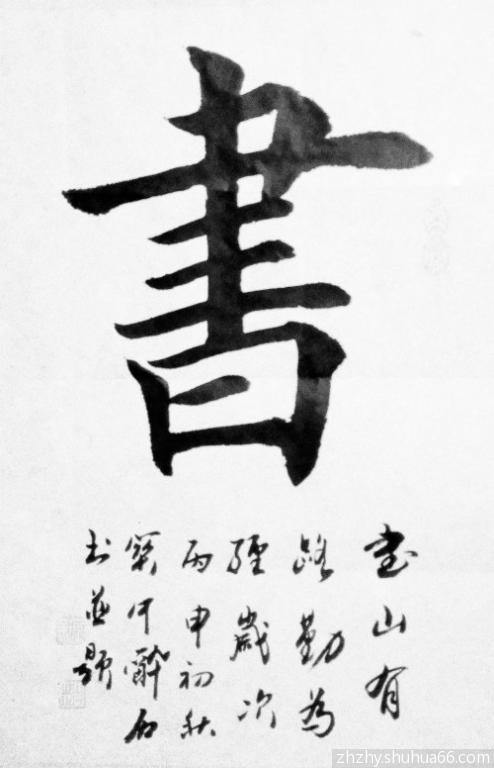 書
書山有
路勤為
經歲次
丙申初秋
醉石
书並題
zhzhy.shuhua66.com